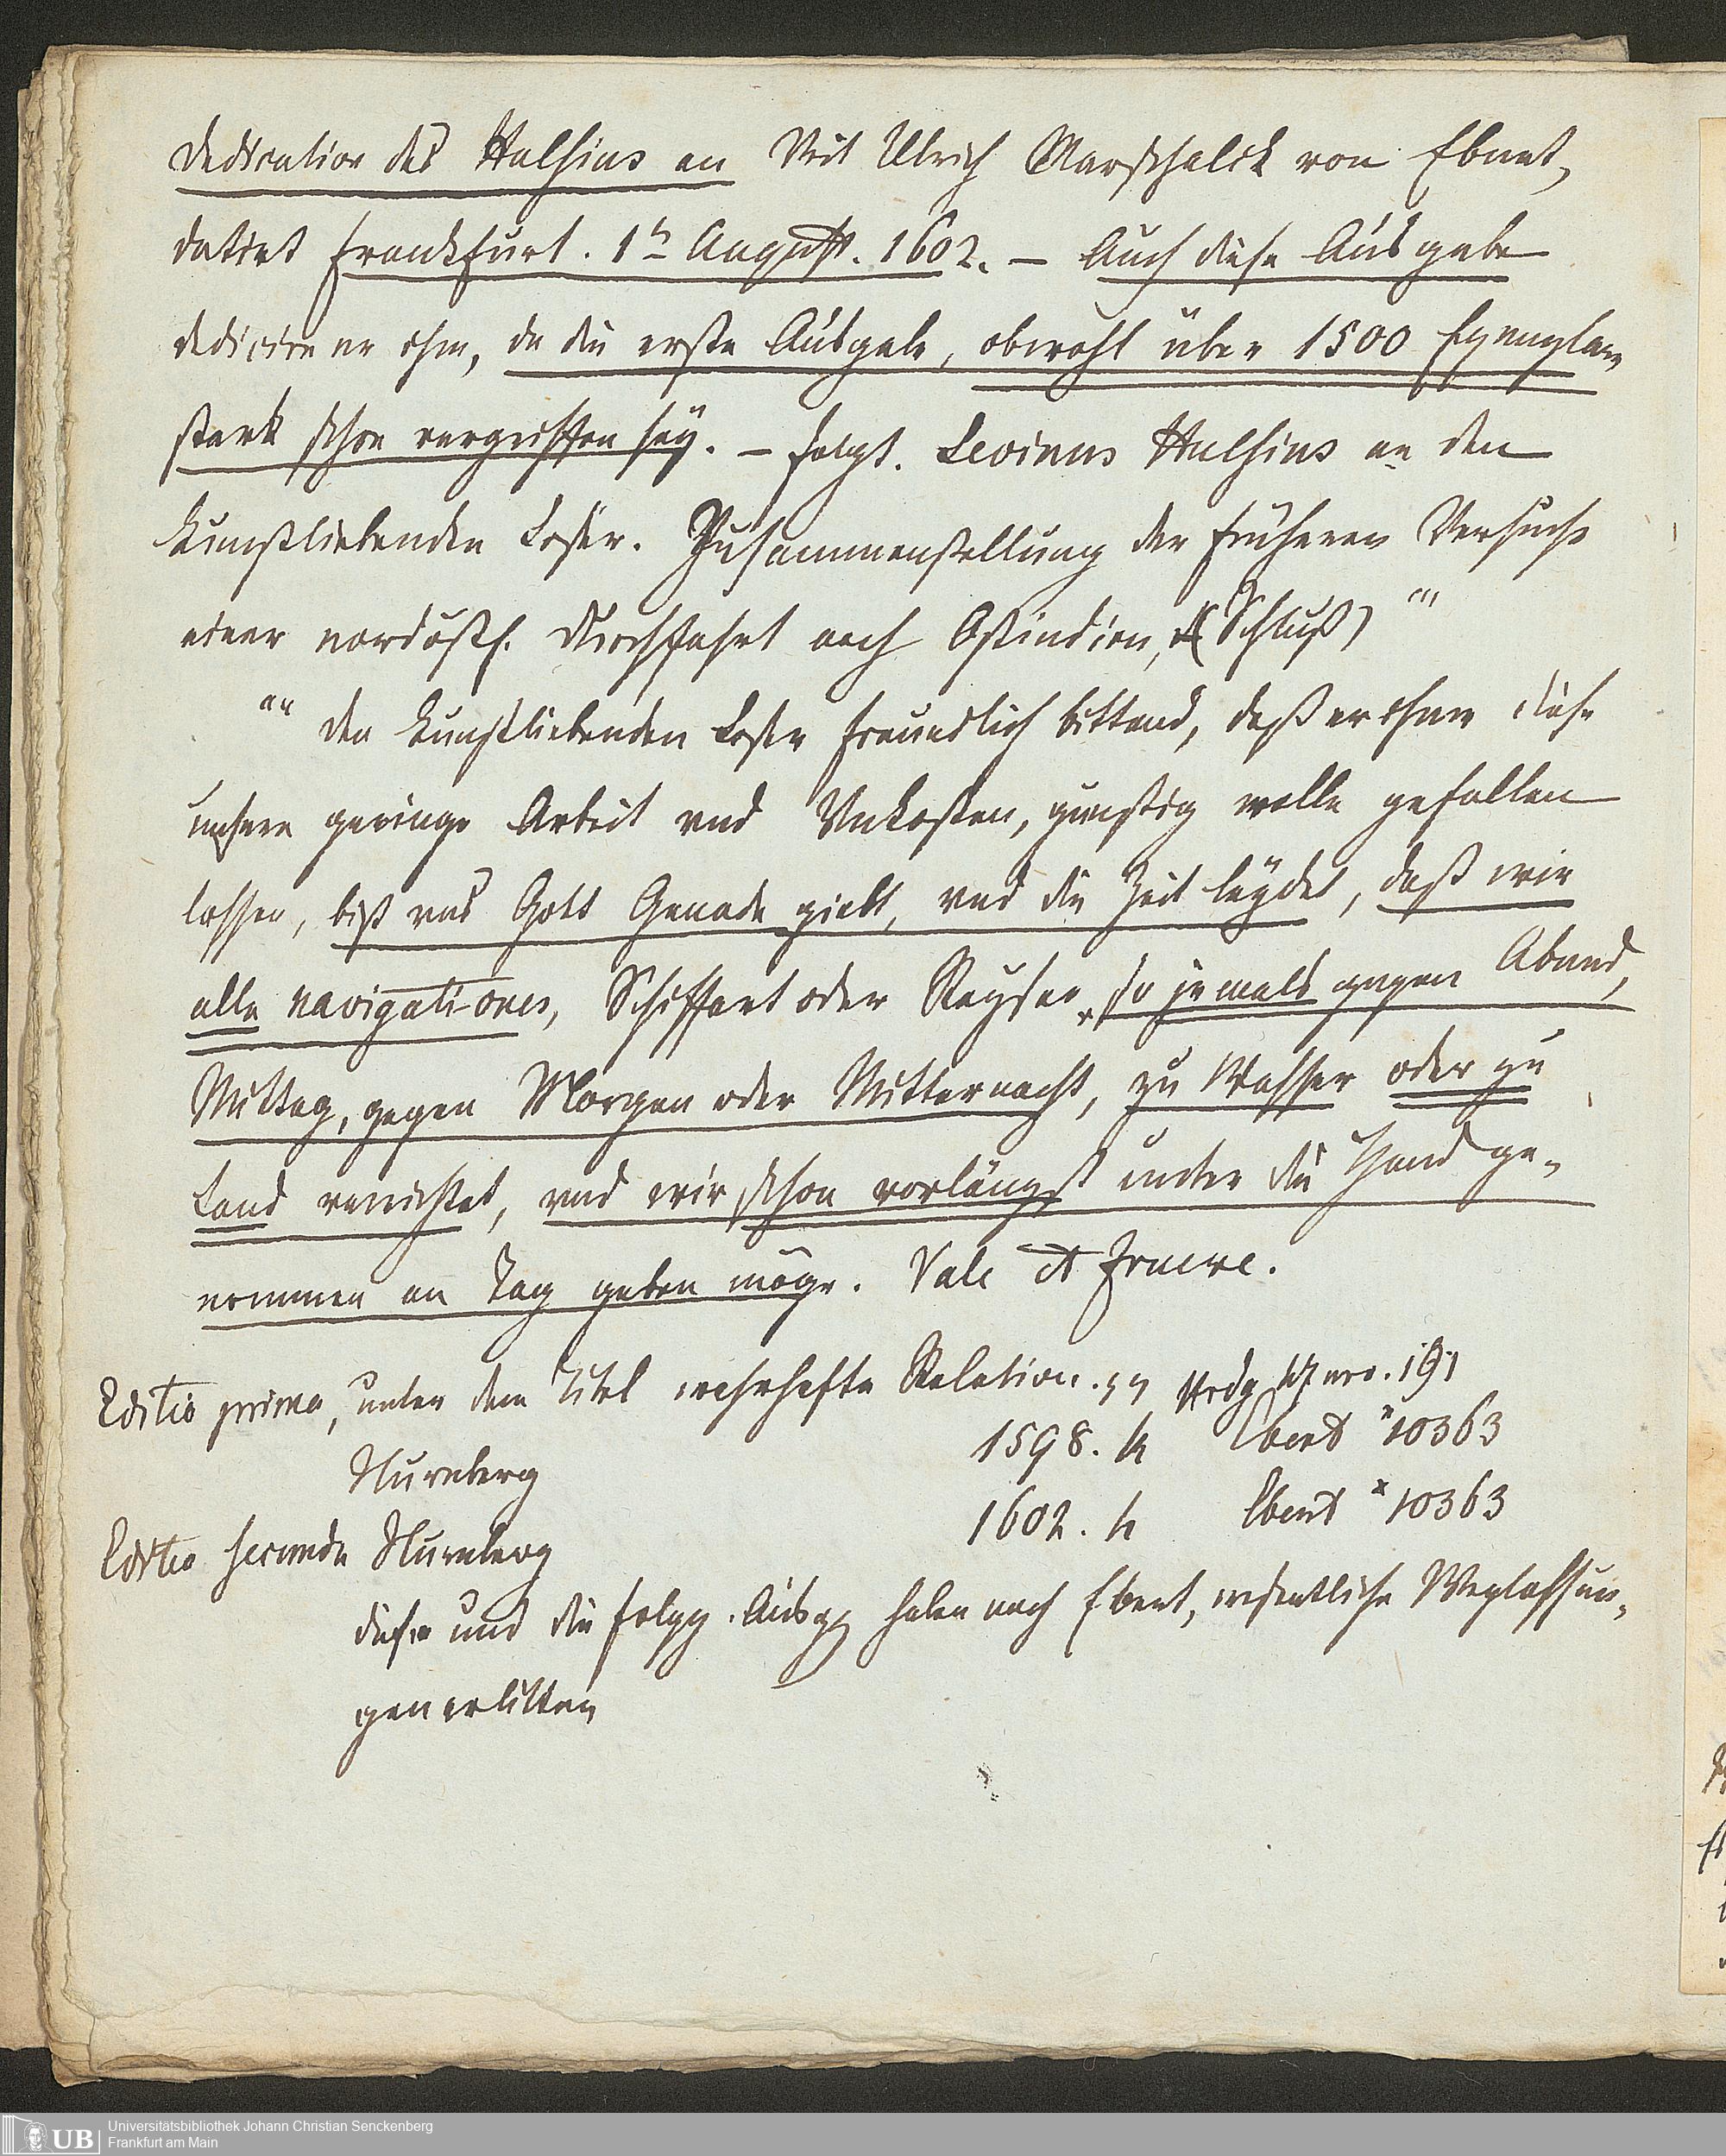 Dedication des Hulsius an Veit Ulrich Marschalck von Ebnet,
datirt Frankfurt. 1n August. 1602. — Auch diese Ausgabe
dedicire er ihm, da die erste Ausgabe, obwohl über 1500 Exemplare
stark schon vergriffen sey. — folgt. Levinus Hulsius an den
Kunstliebenden Leser. Zusammenstellung der früheren Versuche
einer nordöstl. Durchfahrt nach Ostindien, (Schluß) "'
"" den Kunstliebenden Leser freundlich bittend, daß er ihme diese
unsere geringe Arbeit vnd Vnkosten, gunstig wolle gefallen
lassen, biß vns Gott Genade giebt, vnd die Zeit leydet, daß wir
alle navigationes, Schiffart oder Reysen, so jemals gegen Abend,
Mittag, gegen Morgen oder Mitternacht, zu Wasser oder zu
Land verrichtet, vnd wir schon vorlängst unter die Hand ge-
nommen an Tag geben möge. Vale et fruere.
Editio prima, unter dem Titel wahrhafte Relation. nro. 191
Nurnberg 1598. 4 Ebert *10363
Editio secunda Nurnberg 1602. 4 Ebert *10363
diese und die folgg. Ausgg haben nach Ebert, wesentliche Weglassun-
gen erlitten
UB Universitätsbibliothek Johann Christian Senckenberg
Frankfurt am Main